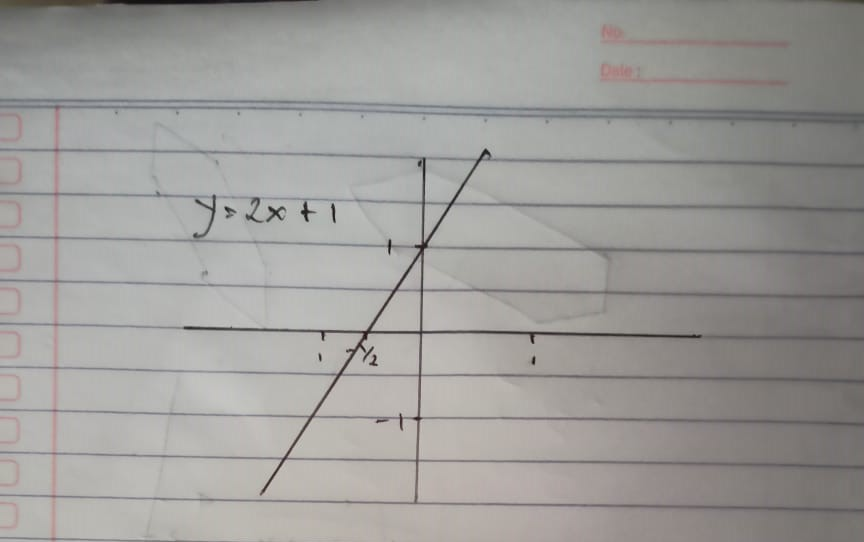 No.
Date:
y=2x+1
1
1 -1/2 1
-1